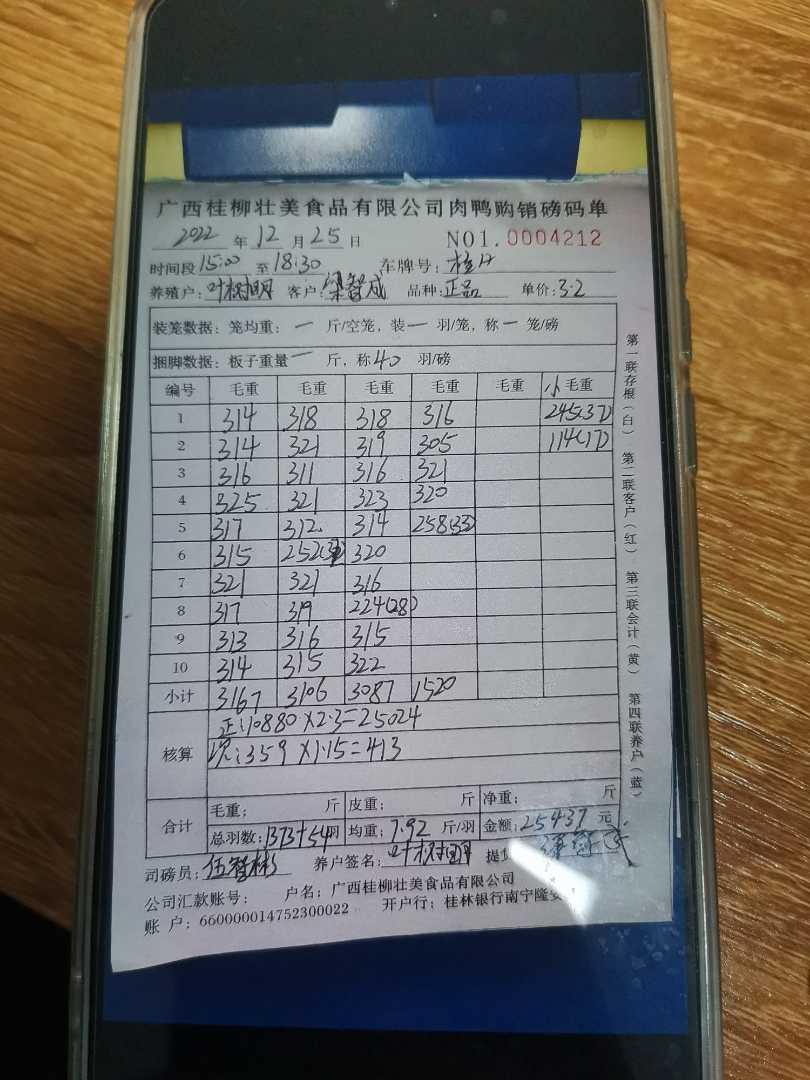 广西桂柳壮美食品有限公司肉鸭购销磅码单
2022 年 12 月 25 日 NO1.0004212
时间段 15:00 至 18:30 车牌号:
养殖户: 叶树明 客户: 梁智成 品种: 正品 单价: 3.2
装笼数据: 笼均重: 一 斤/空笼, 装 一 羽/笼, 称 一 笼/磅
捆脚数据: 板子重量 一 斤, 称 40 羽/磅
编号 毛重 毛重 毛重 毛重 毛重 小毛重
1 314 318 318 316 245(37)
2 314 321 319 305 114(17)
3 316 311 316 321
4 325 321 323 320
5 317 312 314 258(33)
6 315 252(32) 320
7 321 321 316
8 317 319 224(28)
9 313 316 315
10 314 315 322
小计 3167 3106 3087 1520
核算
正:10880×2.3=25024
次:359×1.15=413
合计
毛重: 斤 皮重: 斤 净重: 斤
总羽数: 1373+54 羽 均重: 7.92 斤/羽 金额: 25437 元
司磅员: 伍智彬 养户签名: 叶树明 提货
公司汇款账号: 户名: 广西桂柳壮美食品有限公司
账 户: 660000014752300022 开户行: 桂林银行南宁隆安
第一联存根(白) 第二联客户(红) 第三联会计(黄) 第四联养户(蓝)